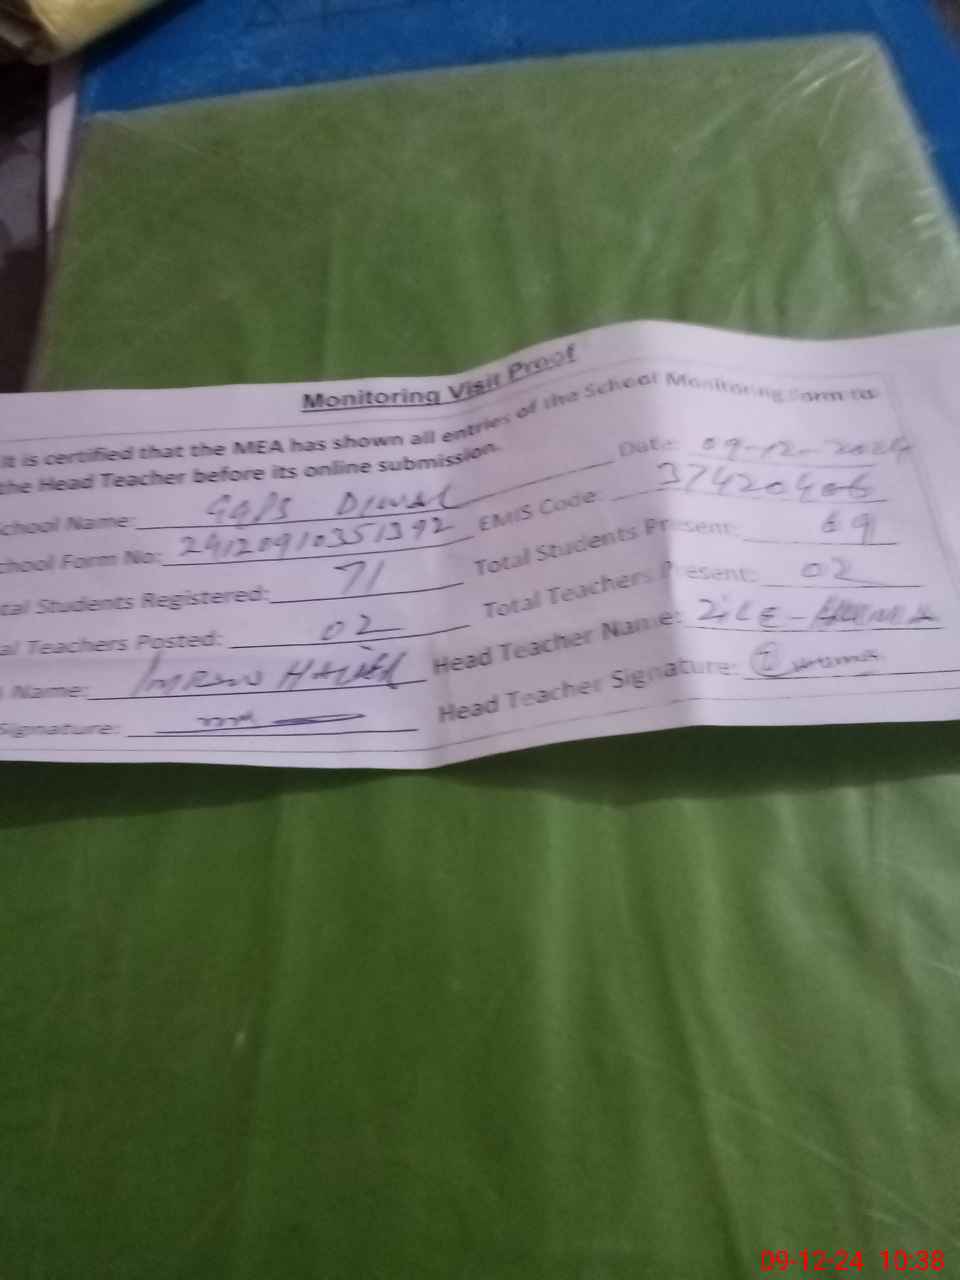 Monitoring Visit Proof
It is certified that the MEA has shown all entries of the School Monitoring Form to
the Head Teacher before its online submission.
Date: 09-12-2024
chool Name: GGPS DIWAL
EMIS Code: 37420406
chool Form No: 24120910351392
Total Students Present: 69
tal Students Registered: 71
Total Teachers Present: 02
al Teachers Posted: 02
Head Teacher Name: ZILE-HUMA
Name: IMRAN
Head Teacher Signature:
Signature:
09-12-24 10:38